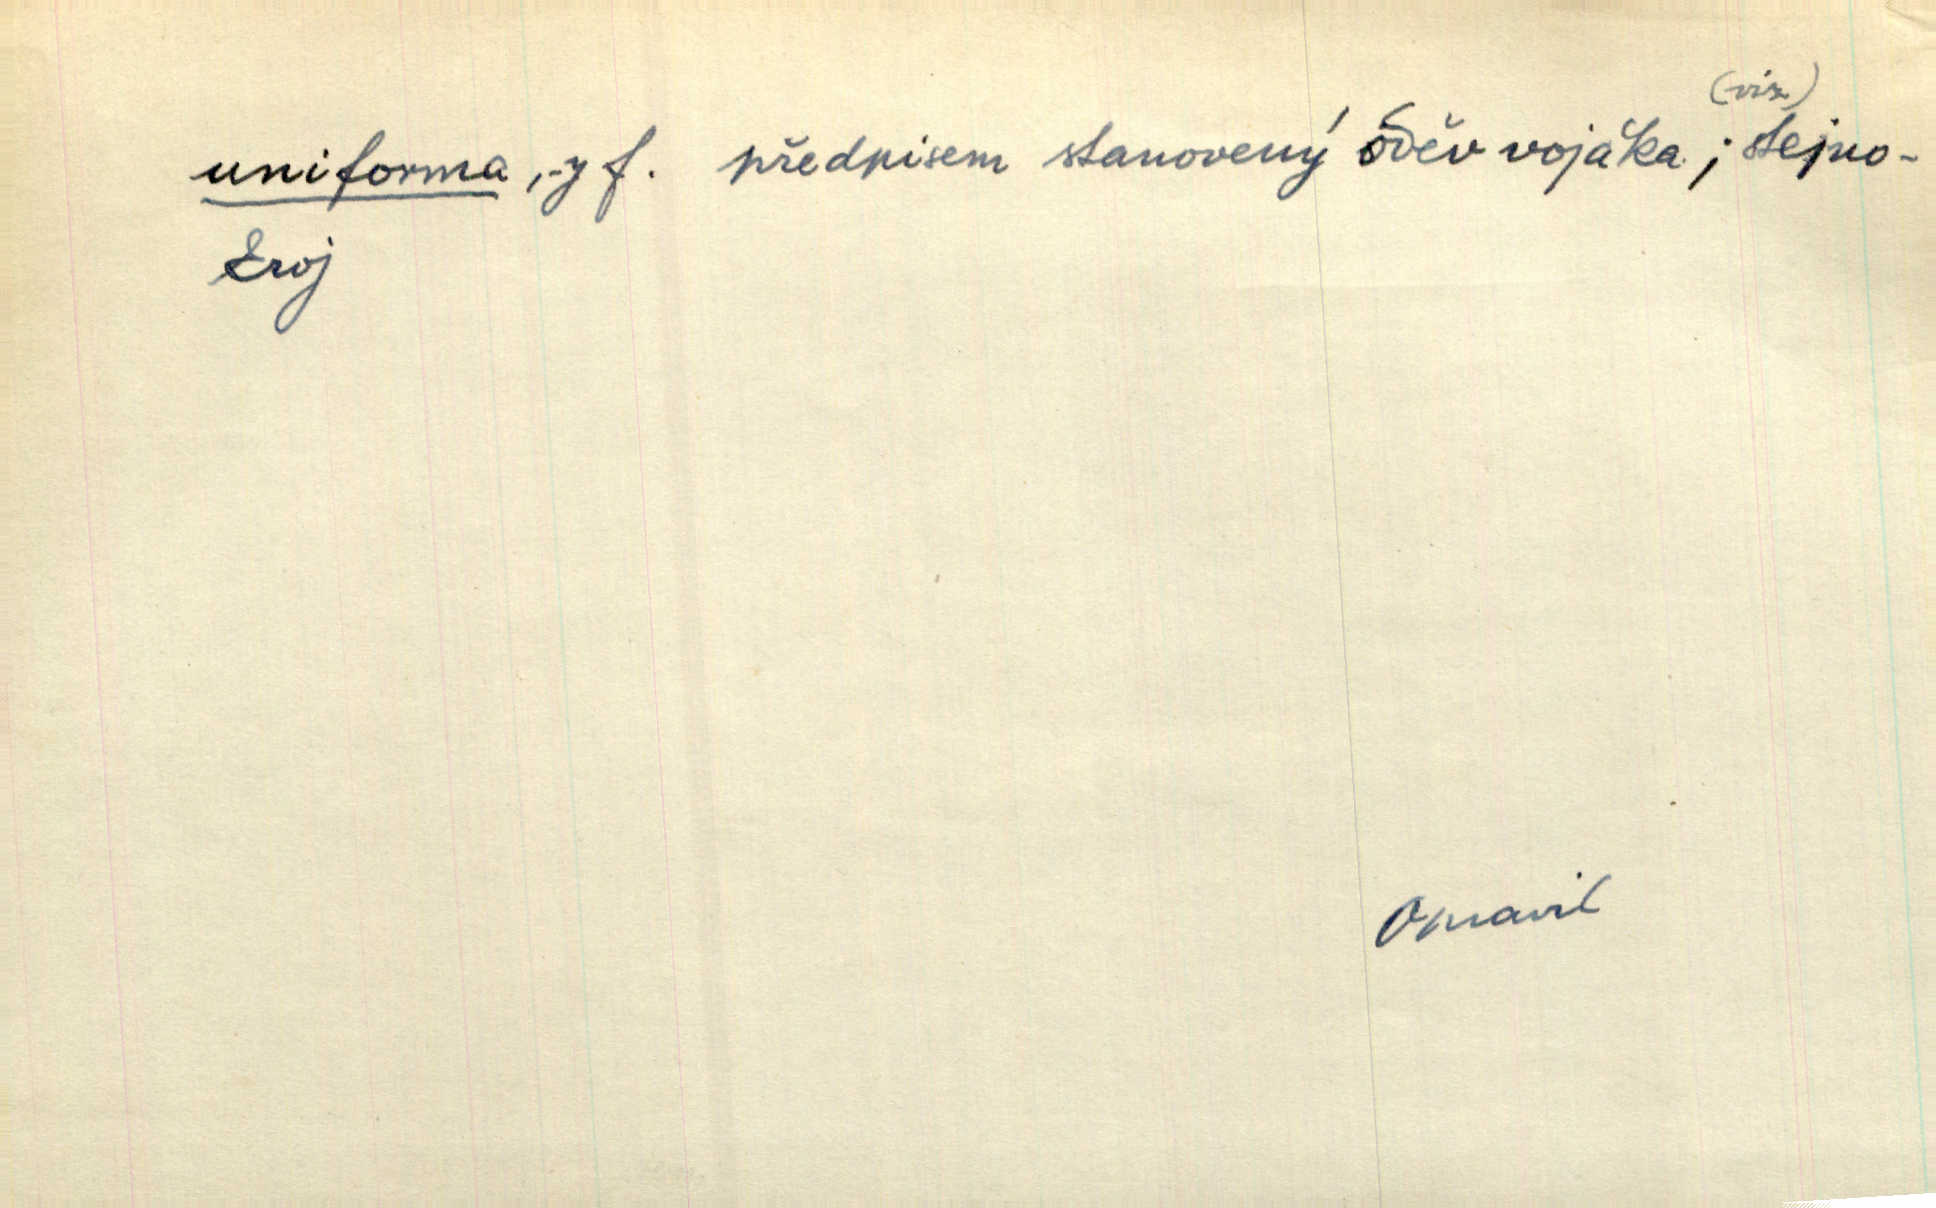 (viz)
uniforma, -y f. předpisem stanovený oděv vojáka; stejno-
kroj
Opravil